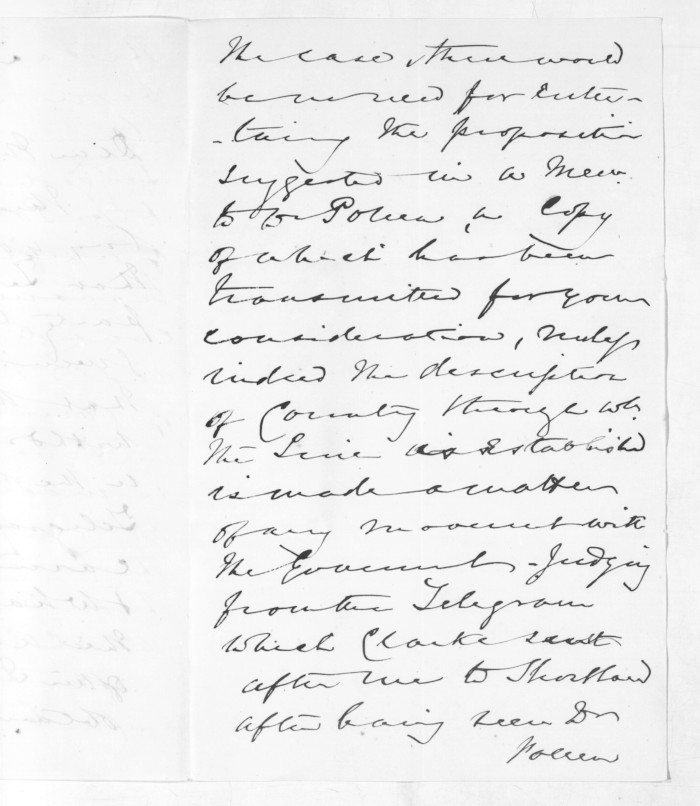 the case, there would
be no need for enter-
-taining the proposition
suggested in a Mem.
to Dr Pollen, a Copy
of which has been
transmitted for your
consideration, unless
indeed the description
of Country through wh.
the Line is established
is made a matter
of any movement with
the Government - Judging
from the Telegram
which Clarke sent
after me to Shortland
after having seen Dr
Pollen